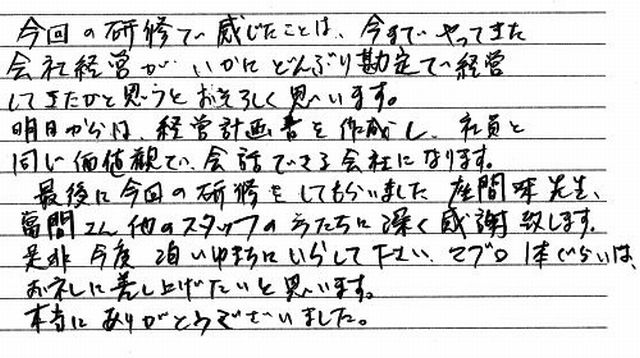 今回の研修で感じたことは、今までやってきた
会社経営が、いかにどんぶり勘定で経営
してきたかと思うとおそろしく思います。
明日からは、経営計画書を作成し、社員と
同じ価値観で、会話できる会社になります。
最後に今回の研修をしてもらいました 座間味先生、
當間さん他のスタッフの方たちに深く感謝致します。
是非 今度 いらして下さい、マグロ1本ぐらいは、
お礼に差し上げたいと思います。
本当にありがとうございました。